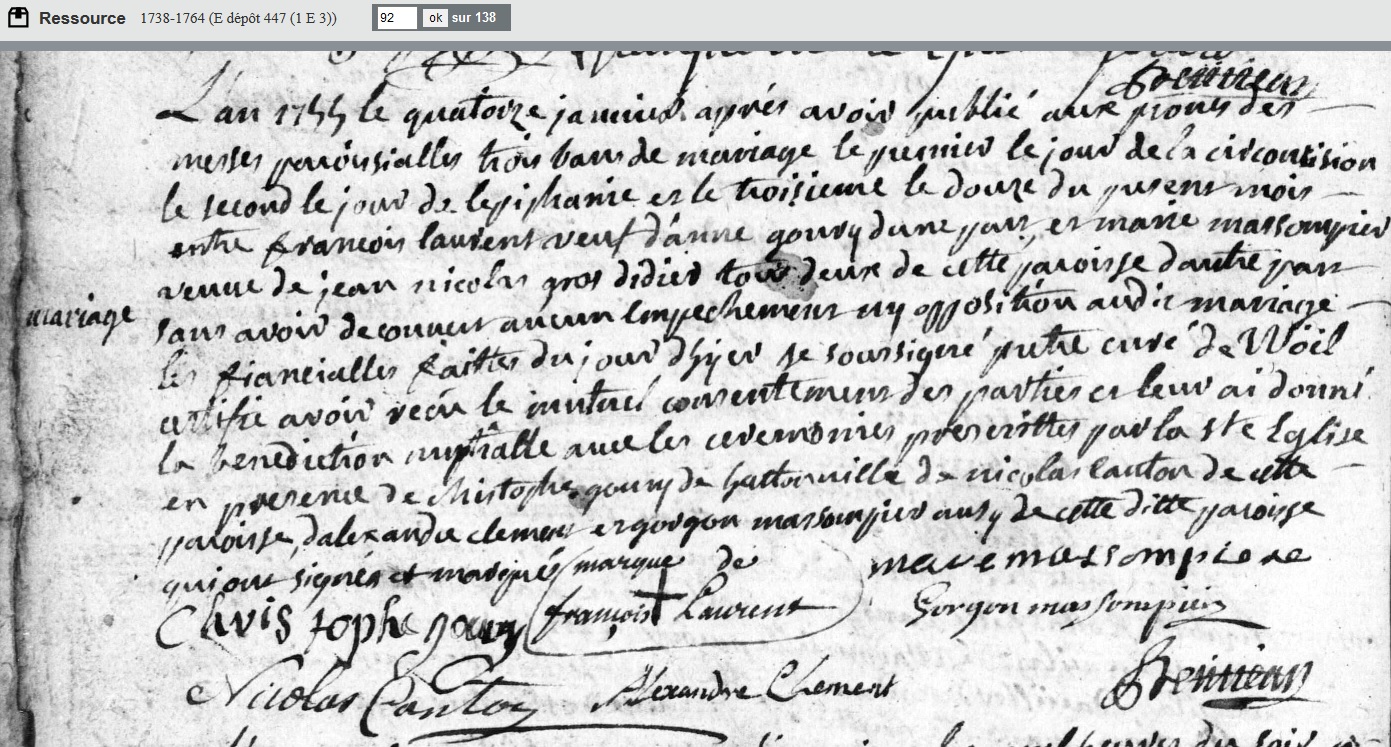 Ressource 1738-1764 (E dépôt 447 (1 E 3)) 92 ok sur 138
L'an 1755 le quatorze janvier après avoir publié aux prons des
messes paroissialles trois bans de mariage le premier le jour de la circontision
le second le jour de lepiphanie et le troisieme le douze du present mois
entre francois laurent veuf d'anne goury dune part, et marie massompier
veuve de jean nicolas gros didier tous deux de cette paroisse dautre part
sans avoir decouvert aucun Empechement ny opposition audit mariage
mariage
les fiancialles faittes du jour dhyer je soussigné pretre curé de Wöel
certifie avoir recu le mutuel consentement des parties et leur ai donné
la benediction nuptialle avec les ceremonies prescrittes par la ste Eglise
en presence de christophe goury de hattonville de nicolas canton de cette
paroisse, dalexandre clement et gorgon massompier ausy de cette ditte paroisse
qui ont signés et marqués marque de
françois Laurent
marie massompiere
Christophe goury
Gorgon massompier
Nicolas Canton
Alexandre Clement